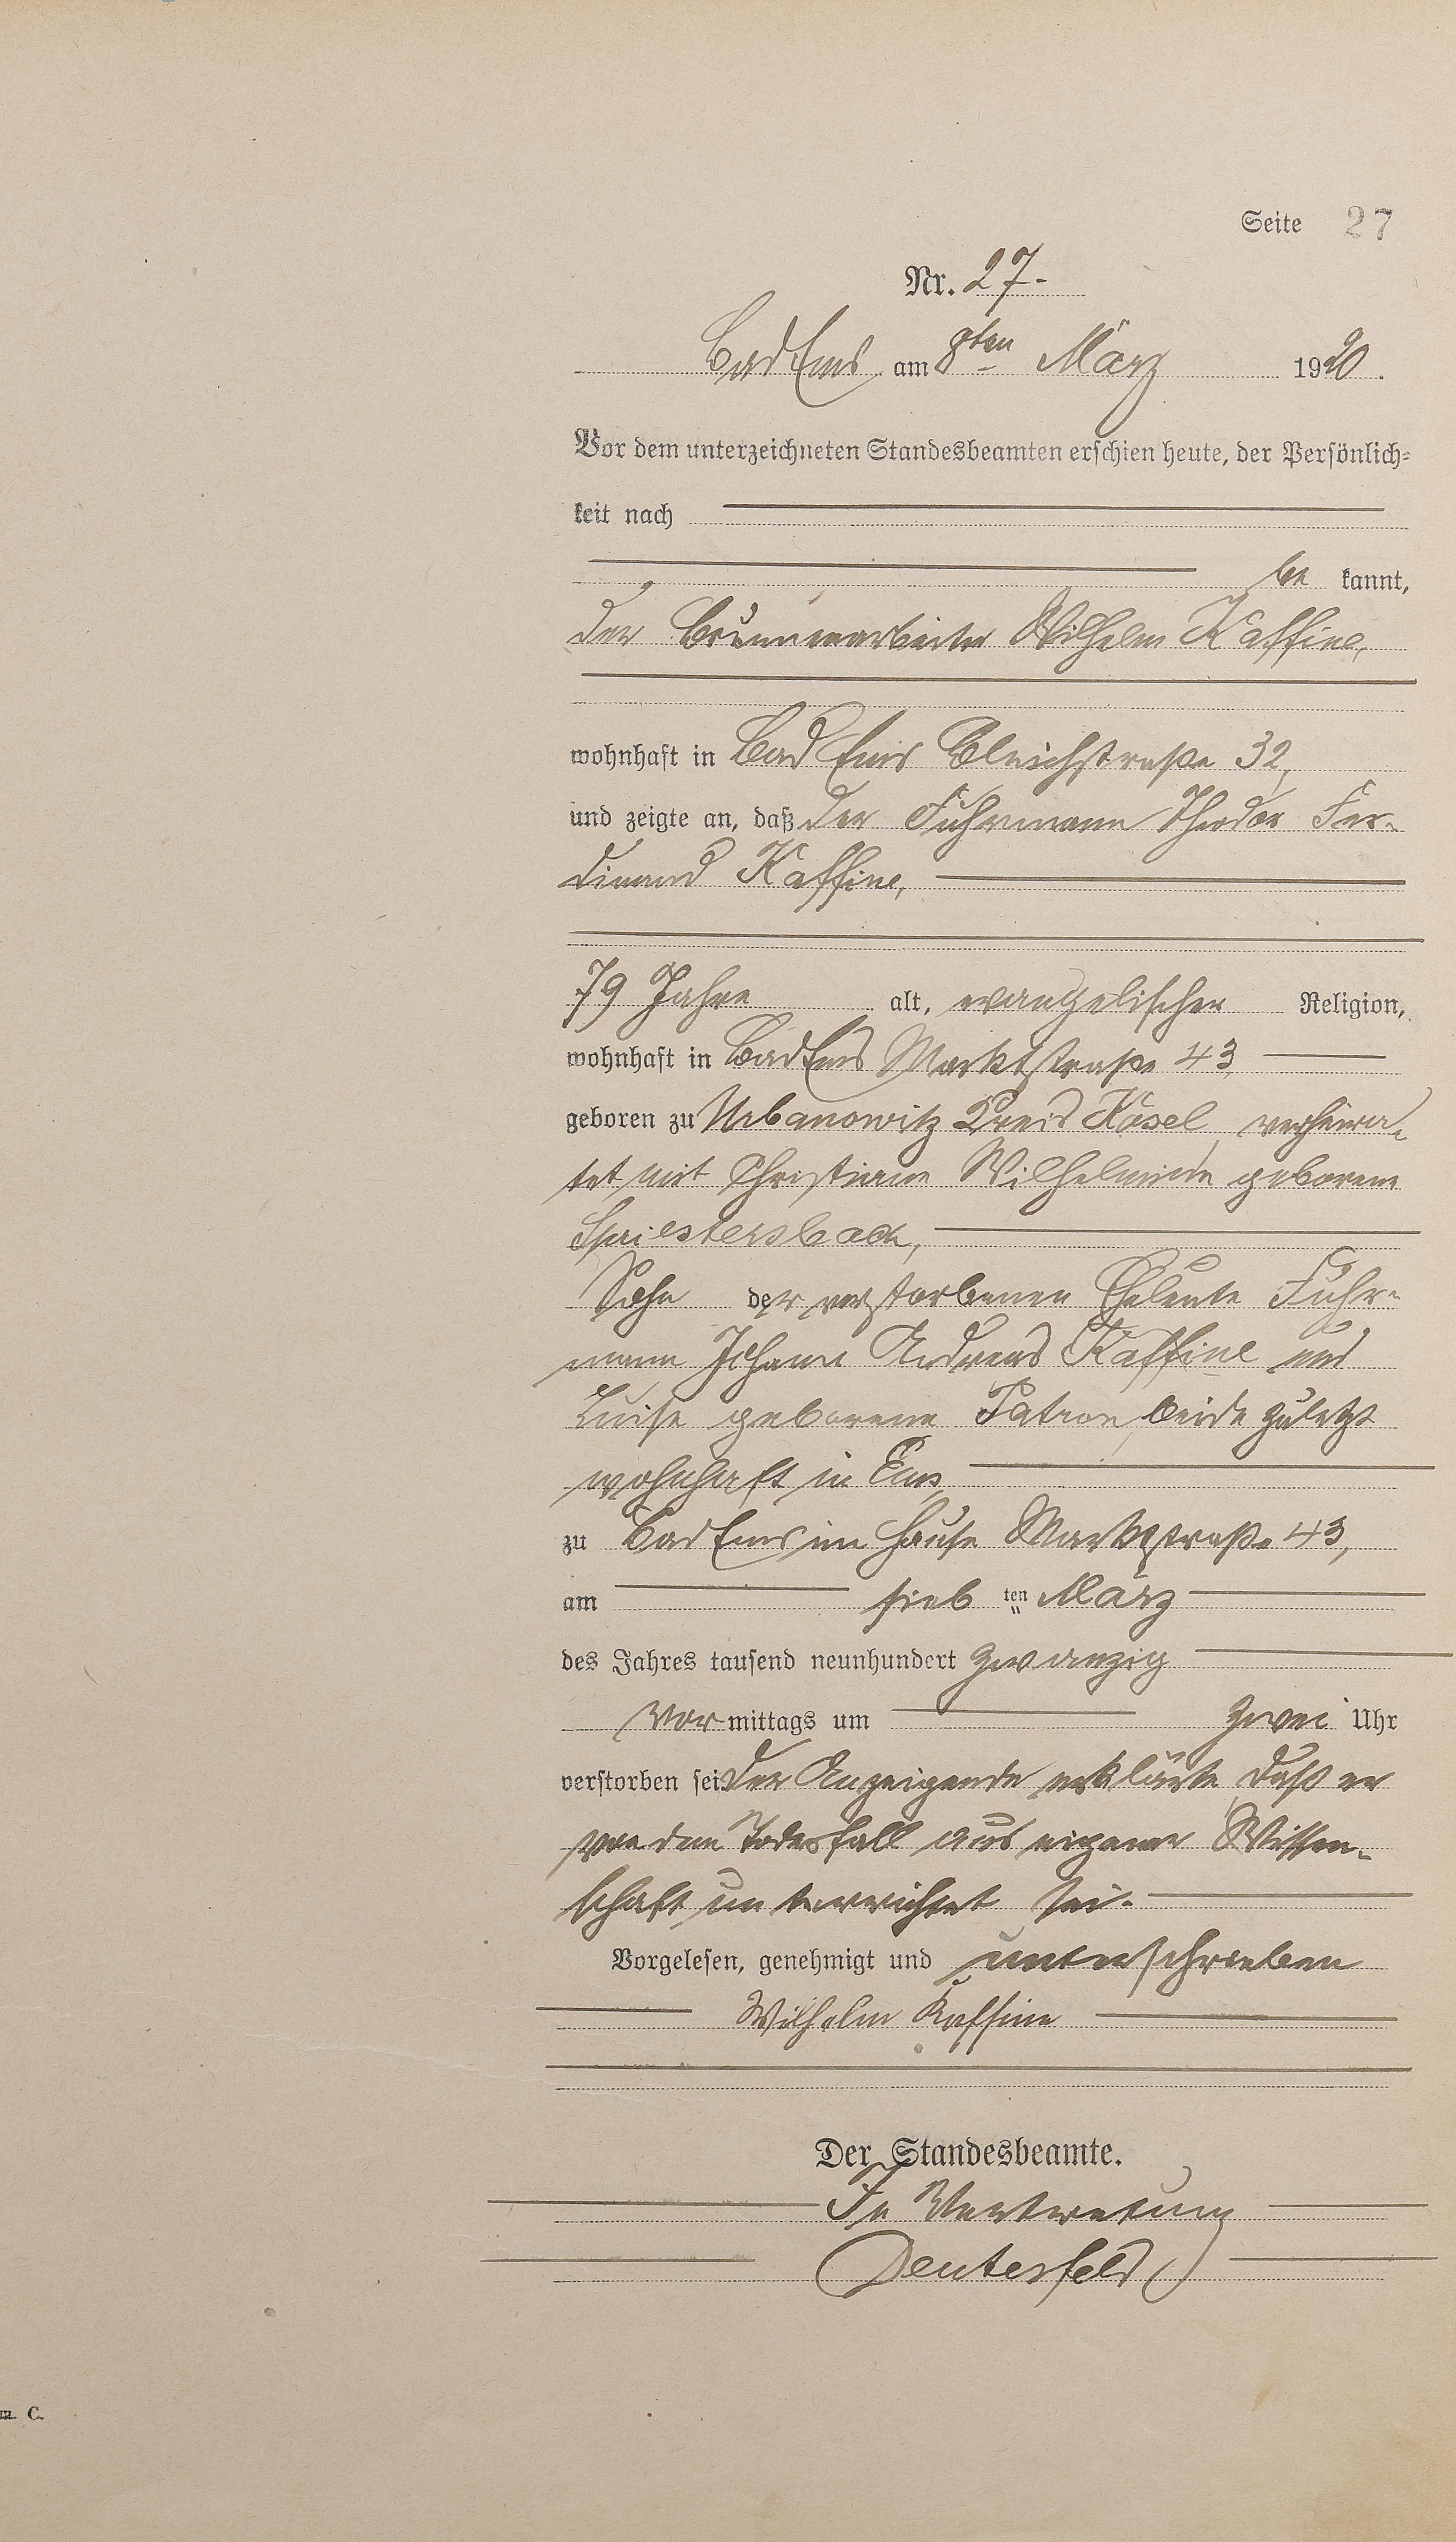 Seite 27
Nr. 27-
Bad Ems am 8ten März 1920.
Vor dem unterzeichneten Standesbeamten erschien heute, der Persönlich-
keit nach
be kannt,
der Brunnenarbeiter Wilhelm Kaffine,
wohnhaft in Bad Ems Bleichstraße 32,
und zeigte an, daß der Fuhrmann Theodor Fer-
dinand Kaffine,
79 Jahre alt, evangelischer Religion,
wohnhaft in Bad Ems Marktstraße 43,
geboren zu Urbanowitz Kreis Kosel, verheira-
tet mit Christiane Wilhelmine geborene
Spriestersbach,
Sohn der verstorbenen Eheleute Fuhr-
mann Johann Andreas Kaffine und
Luise geborene Patron, beide zuletzt
wohnhaft in Ems,
zu Bad Ems im Hause Marktstraße 43,
am sieb ten März
des Jahres tausend neunhundert zwanzig
Vor mittags um zwei Uhr
verstorben sei. Der Anzeigende erklärte, daß er
von dem Todesfall aus eigener Wissen-
schaft unterrichtet sei.
Vorgelesen, genehmigt und unterschrieben
Wilhelm Kaffine
Der Standesbeamte.
In Vertretung
Deutesfeld
C.